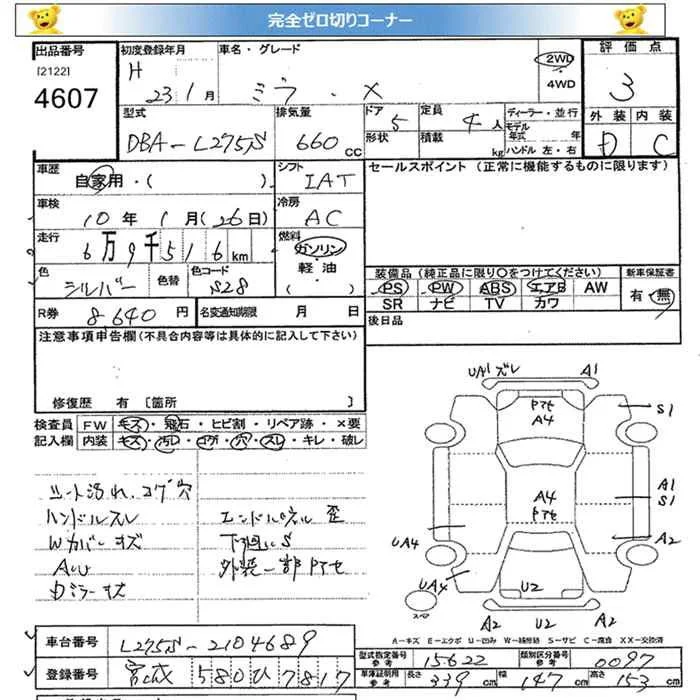 完全ゼロ切りコーナー
出品番号
[2122]
4607
初度登録年月
H 23 1月
車名・グレード
ミラ・X
2WD
4WD
評価点
3
外装 内装
D C
型式
DBA-L275S
排気量
660 cc
ドア 5
形状
定員 4人
積載 kg
ディーラー・並行
モデル年式 年
ハンドル 左・右
車歴
自家用・( )
シフト
IAT
セールスポイント (正常に機能するものに限ります)
車検
10年 1月(26日)
冷房
AC
走行
6万9千516km
燃料
ガソリン
軽・油
( )
色
シルバー
色替
色コード
S28
装備品 (純正品に限り○をつけてください)
新車保証書
PS PW ABS エアB AW
SR ナビ TV カワ
有・無
R券 8640円
名変通知期限 月 日
後日品
注意事項申告欄(不具合内容等は具体的に記入して下さい)
修復歴 有 [箇所 ]
検査員 FW キズ・飛石・ヒビ割・リペア跡・×要
記入欄 内装 キズ・汚レ・コゲ・穴・スレ・キレ・破レ
シート汚れ、コゲ穴
ハンドルスレ
Wカバーキズ
Dミラーキズ
エンドパネル歪
下廻りS
外装一部Pマセ
UA1 ズレ A1
Pマセ
A4
S1
A4
Pマセ
A1
S1
UA4
A2
UA4
U2
スペア
A2 U2 A2
A-キズ E-エクボ U-凹み W-補修跡 S-サビ C-腐食 XX-交換済
車台番号 L275S-2104689
登録番号 宮城 580 ひ 7817
型式指定番号 参考 15622
類別区分番号 参考 0097
車庫証明用 参考 長さ 339cm 幅 147cm 高さ 153cm